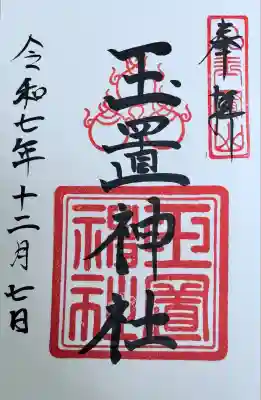 奉拝
玉置神社
玉置神社
令和七年十二月七日